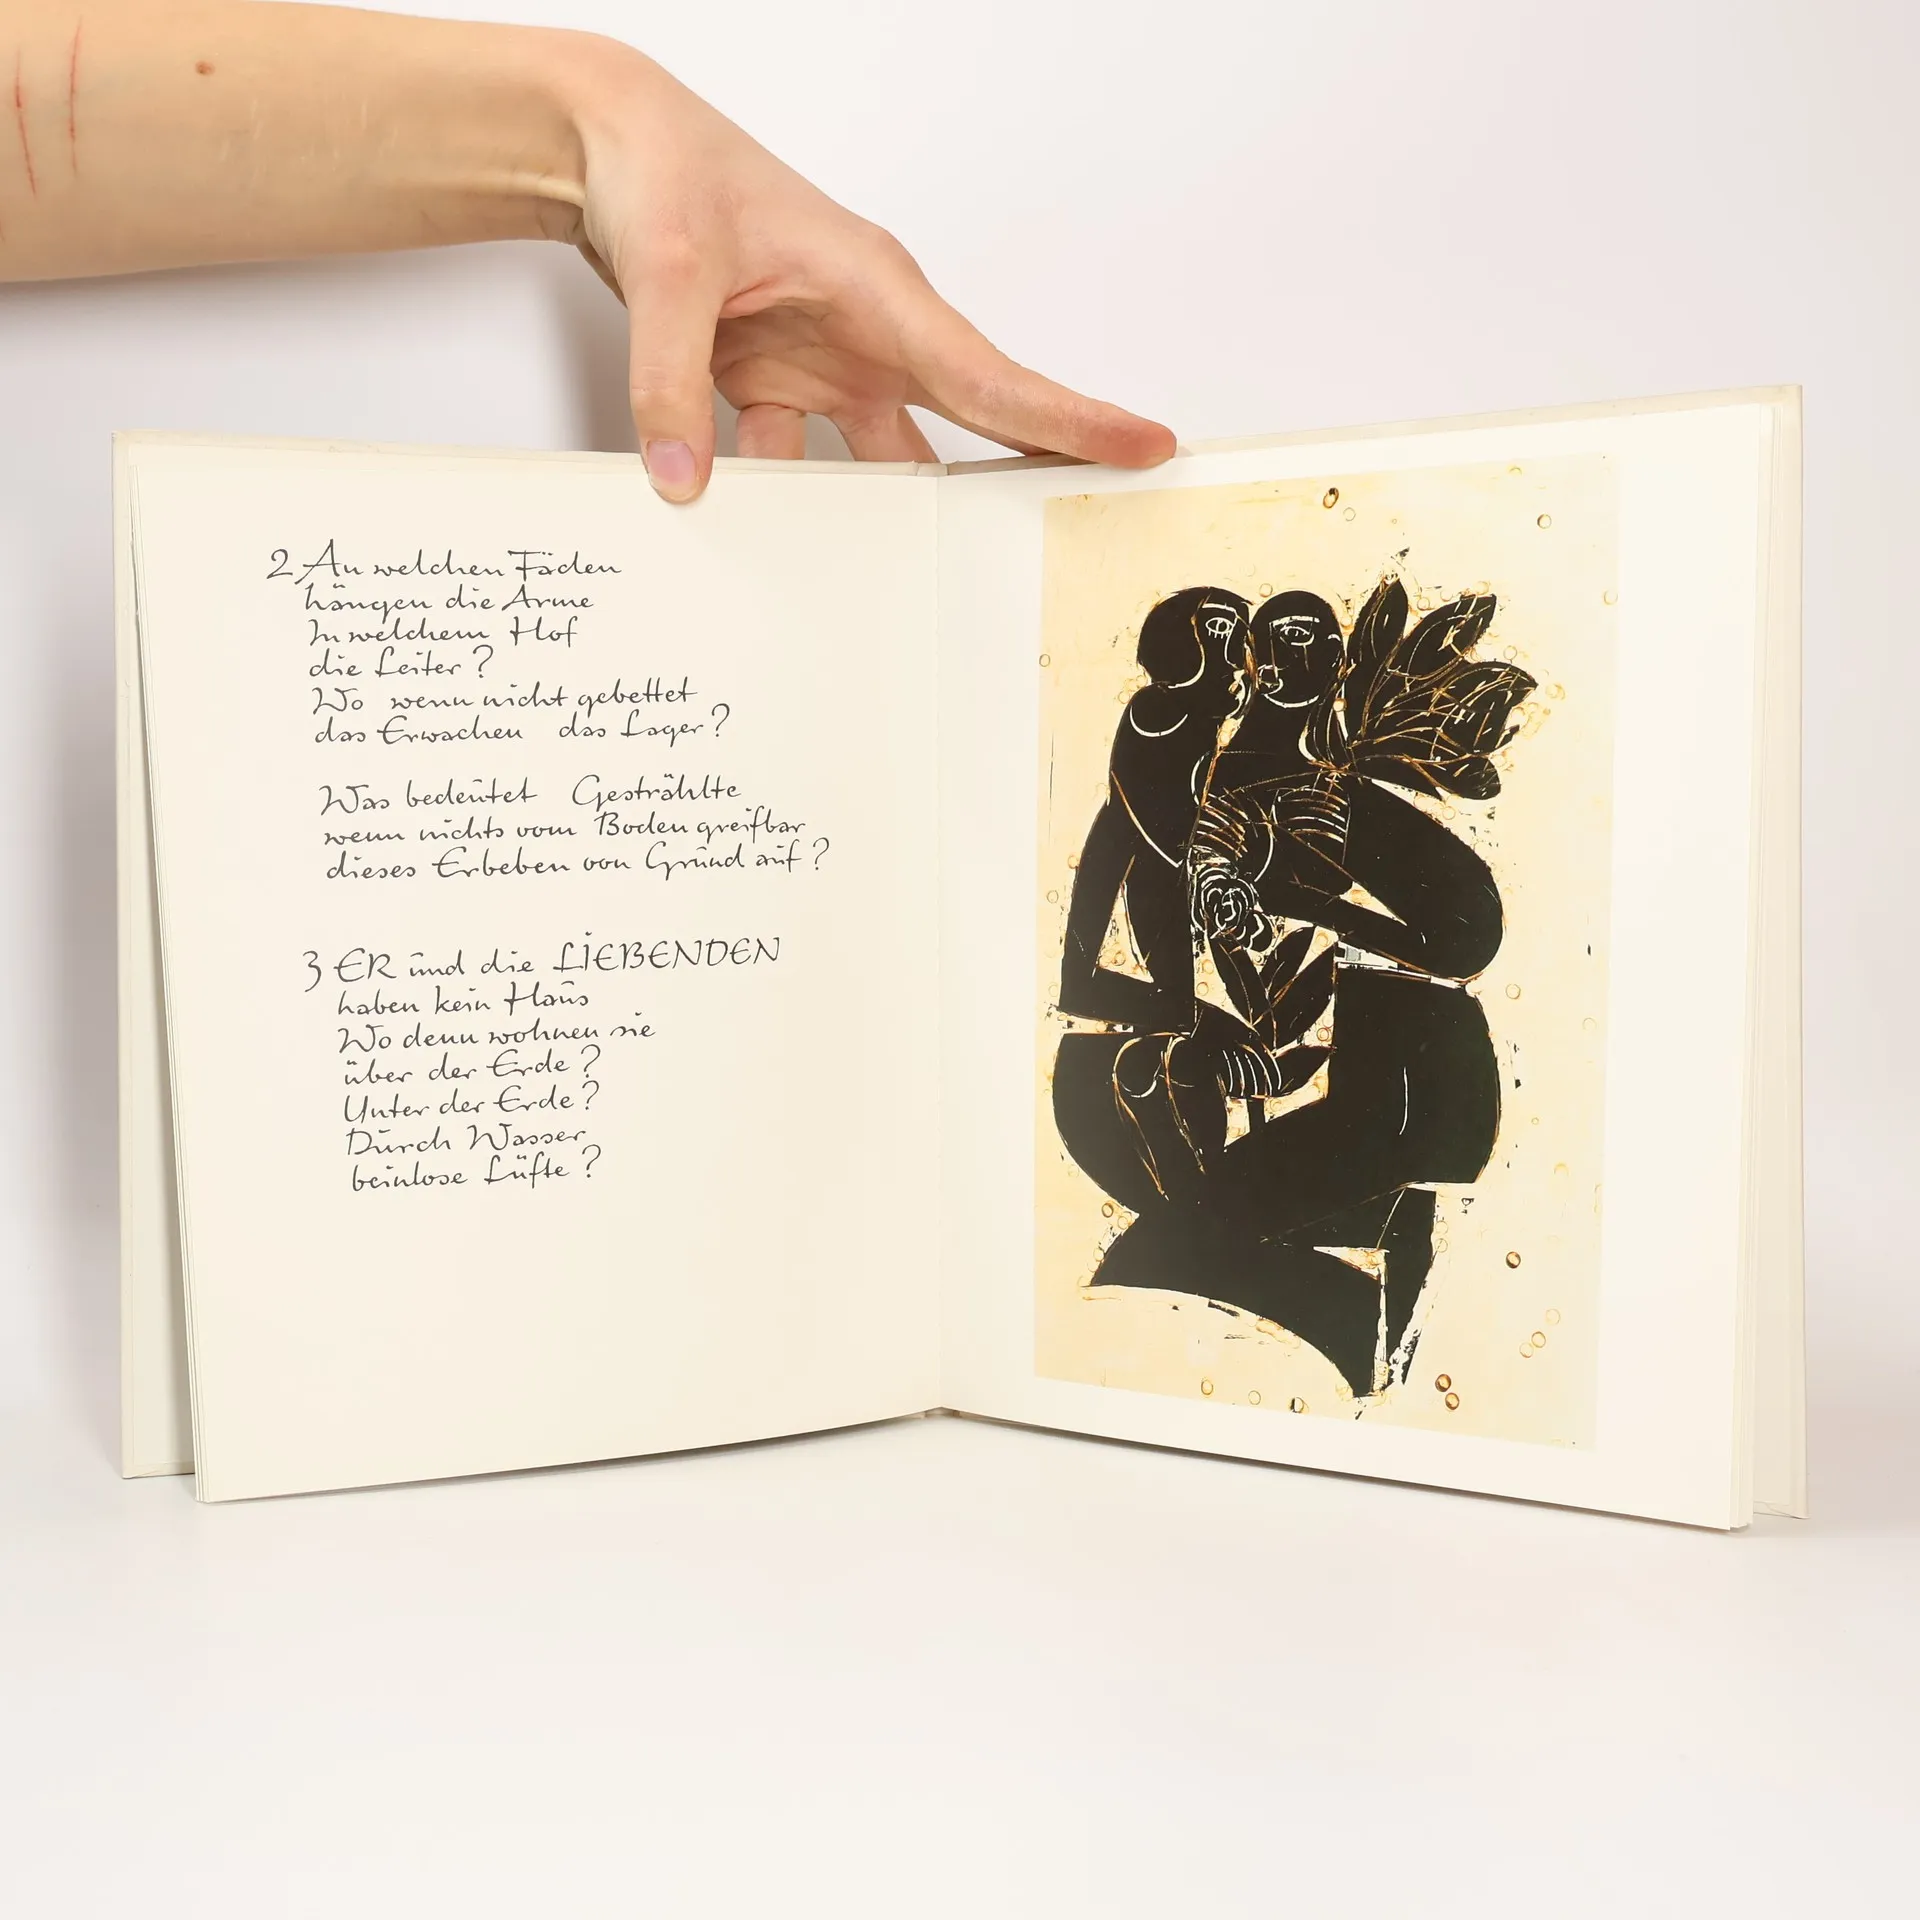 2 An welchen Fäden
hängen die Arme
In welchem Hof
die Leiter?
Wo wenn nicht gebettet
das Erwachen das Lager?
Was bedeutet Gestrählte
wenn nichts vom Boden greifbar
dieses Erbeben von Grund auf?
3 ER und die LIEBENDEN
haben kein Haus
Wo denn wohnen sie
über der Erde?
Unter der Erde?
Durch Wasser
beinlose Lüfte?